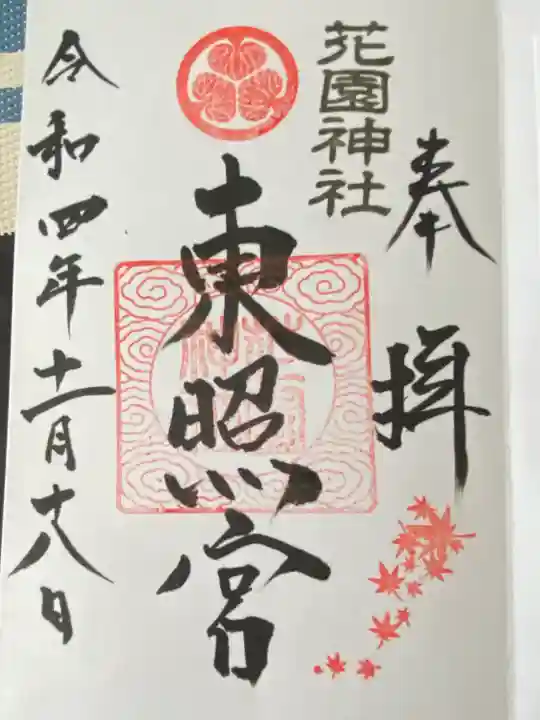 奉拝
花園神社
東照宮
令和四年十一月十八日